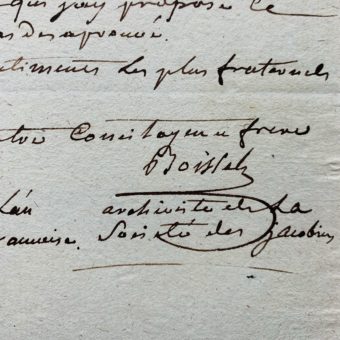 qui j'ay proposé ce
desaprouvé.
sentiments les plus fraternels
votre Concitoyen et frere
Boissel
L'an archiviste de la
Societé des jacobins